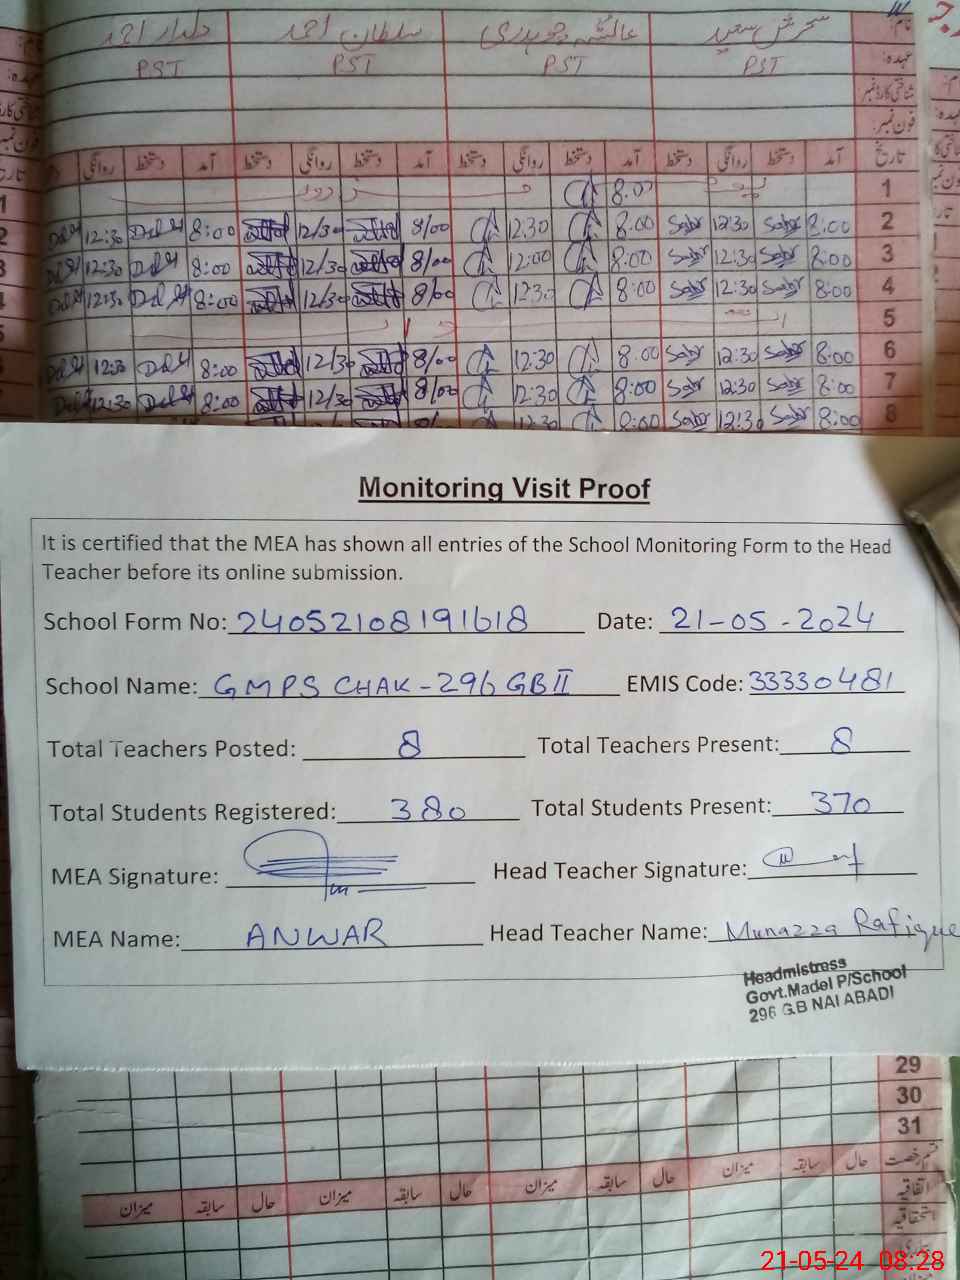 سحرش سعید عائشہ چوہدری سلطان احمد دلدار احمد نام:
PST PST PST PST عہدہ:
شناختی کارڈ نمبر
فون نمبر:
تاریخ آمد دستخط روانگی دستخط آمد دستخط روانگی دستخط آمد دستخط روانگی دستخط آمد دستخط روانگی
1 8:00
2 8:00 12:30 8:00 12:30 8/00 12/30 8:00 12:30
3 8:00 12:30 8:00 12:00 8/00 12/30 8:00 12:30
4 8:00 12:30 8:00 12:30 8/00 12/30 8:00 12:30
5
6 8:00 12:30 8:00 12:30 8/00 12/30 8:00 12:30
7 8:00 12:30 8:00 12:30 8/00 12/30 8:00 12:30
8 8:00 12:30 8:00 12:30
Monitoring Visit Proof
It is certified that the MEA has shown all entries of the School Monitoring Form to the Head
Teacher before its online submission.
School Form No: 24052108191618 Date: 21-05-2024
School Name: GMPS CHAK-296 GB II EMIS Code: 33330481
Total Teachers Posted: 8 Total Teachers Present: 8
Total Students Registered: 380 Total Students Present: 370
MEA Signature: Head Teacher Signature:
MEA Name: ANWAR Head Teacher Name: Munazza Rafique
Headmistress
Govt.Madel P/School
296 G.B NAI ABADI
29
30
31
قسم رخصت حال سابقہ میزان حال سابقہ میزان حال سابقہ میزان حال سابقہ میزان
اتفاقیہ
استحقاقیہ
21-05-24 08:28